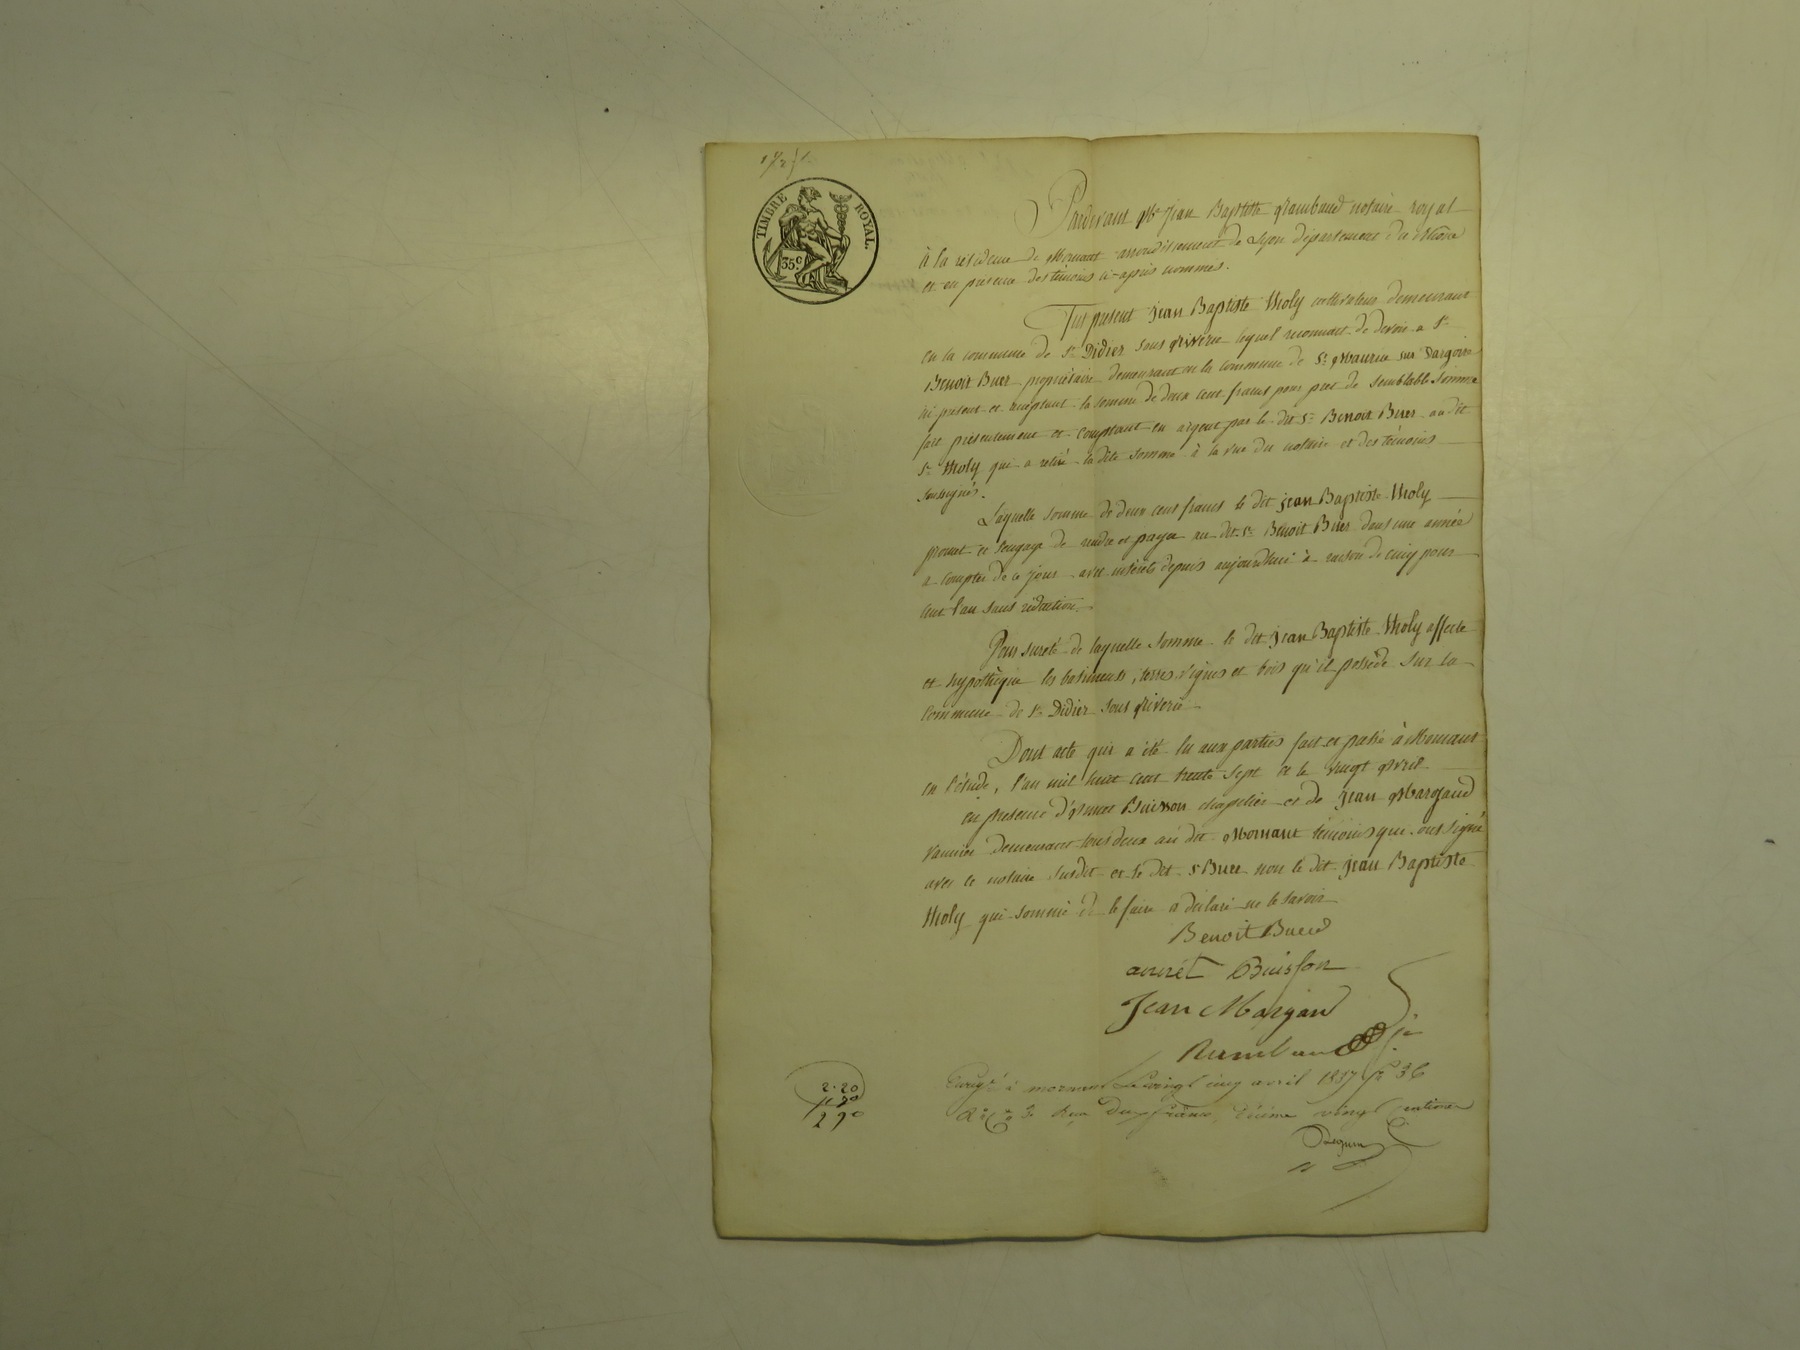 TIMBRE ROYAL.
35 c
Pardevant Me Jean Baptiste Rambaud notaire royal
à la résidence de Mornant arrondissement de Lyon département du Rhône
et en présence des témoins ci-après nommés.
Fut présent Jean Baptiste Moly cultivateur demeurant
en la commune de St Didier sous Riverie lequel reconnait de devoir a Sr
Benoit Buer propriétaire demeurant en la commune de St Maurice sur Dargoire
ici présent et acceptant la somme de deux cent francs pour pret de semblable somme
fait présentement et comptant en argent par le dit Sr Benoit Buer au dit
Sr Moly qui a retiré la dite somme à la vue du notaire et des témoins
soussignés.
Laquelle somme de deux cent francs le dit Jean Baptiste Moly
promet et s'engage de rendre et payer au dit Sr Benoit Buer dans une année
a compter de ce jour avec intérêts depuis aujourd'hui à raison de cinq pour
cent l'an sans réduction.
Pour sureté de laquelle somme le dit Jean Baptiste Moly affecte
et hypothèque les batiments, terres, vignes et bois qu'il possède sur la
commune de St Didier sous Riverie
Dont acte qui a été lu aux parties fait et passé à Mornant
en l'étude, l'an mil huit cent trente sept et le vingt Avril
en présence d'Annet Buisson chapelier et de Jean Margaud
vannier demeurant tous deux au dit Mornant témoins qui ont signé
avec le notaire susdit et le dit Sr Buer non le dit Jean Baptiste
Moly qui sommé de le faire a déclaré ne le savoir
Benoit Buer
annet Buisson
Jean Margaud
Rambaud
Enregé à mornant Le vingt cinq avril 1837 fo 36
Reçu Deux francs, Décime vingt centimes
2.20